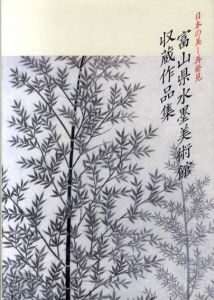 日本の美―再発見
富山県水墨美術館
収蔵作品集